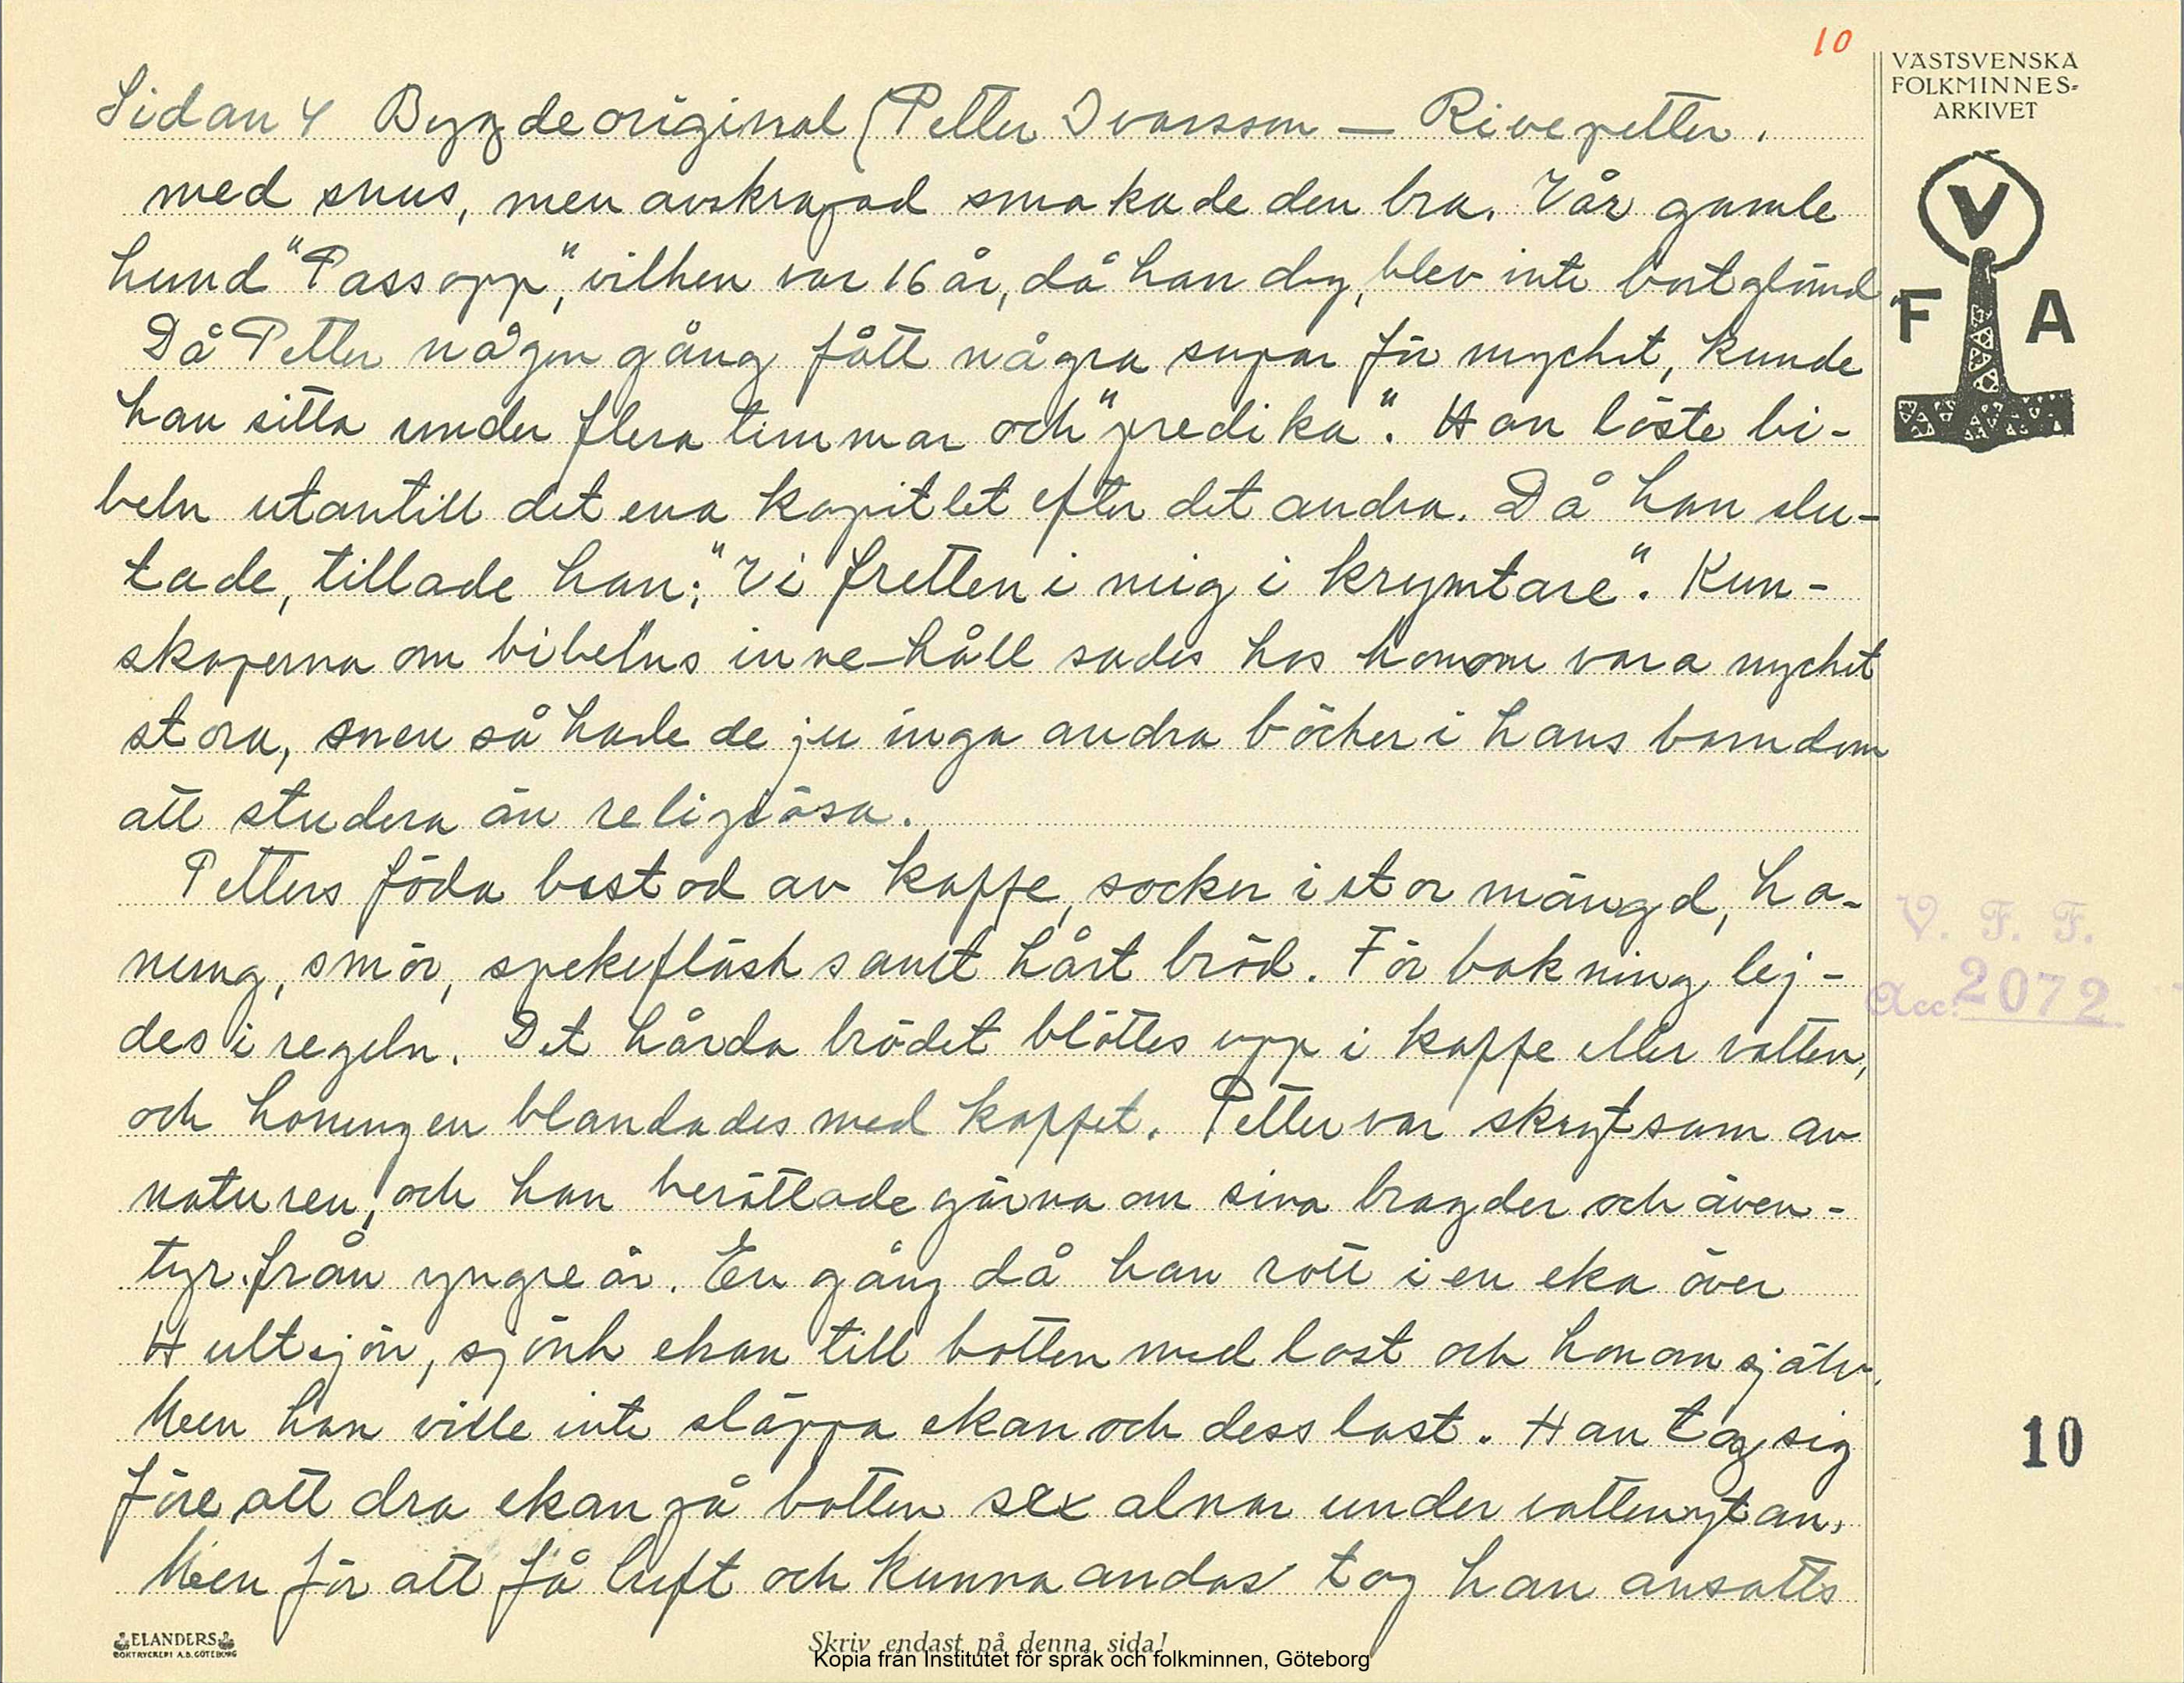 10
VÄSTSVENSKA
FOLKMINNES-
ARKIVET
V
F A
Sidan 4 Bygdeoriginal (Petter Ivarsson — Rivepetter.
med snus, men avskrapad smakade den bra. Vår gamle
hund "Passopp", vilken var 16 år, då han dog, blev inte bortglömd.
Då Petter någon gång fått några supar för mycket, kunde
han sitta under flera timmar och "predika". Han läste bi-
beln utantill det ena kapitlet efter det andra. Då han slu-
tade, tillade han: "Vi fretten i mig i krymtare". Kun-
skaperna om bibelns inne-håll sades hos honom vara mycket
stora, men så hade de ju inga andra böcker i hans barndom
att studera än religiösa.
Petters föda bestod av kaffe, socker i stor mängd, ho-
nung, smör, spekefläsk samt hårt bröd. För bakning lej-
des i regeln. Det hårda brödet blöttes upp i kaffe eller vatten,
och honungen blandades med kaffet. Petter var skrytsam av
naturen, och han berättade gärna om sina bragder och även-
tyr från yngre år. En gång då han rott i en eka över
Hultsjön, sjönk ekan till botten med last och honom själv.
Men han ville inte släppa ekan och dess last. Han tog sig
före att dra ekan på botten sex alnar under vattenytan.
Men för att få luft och kunna andas tog han ansatts
V. F. F.
Acc. 2072
10
ELANDERS
BOKTRYCKERI A.B. GÖTEBORG
Skriv endast på denna sida!
Kopia från Institutet för språk och folkminnen, Göteborg